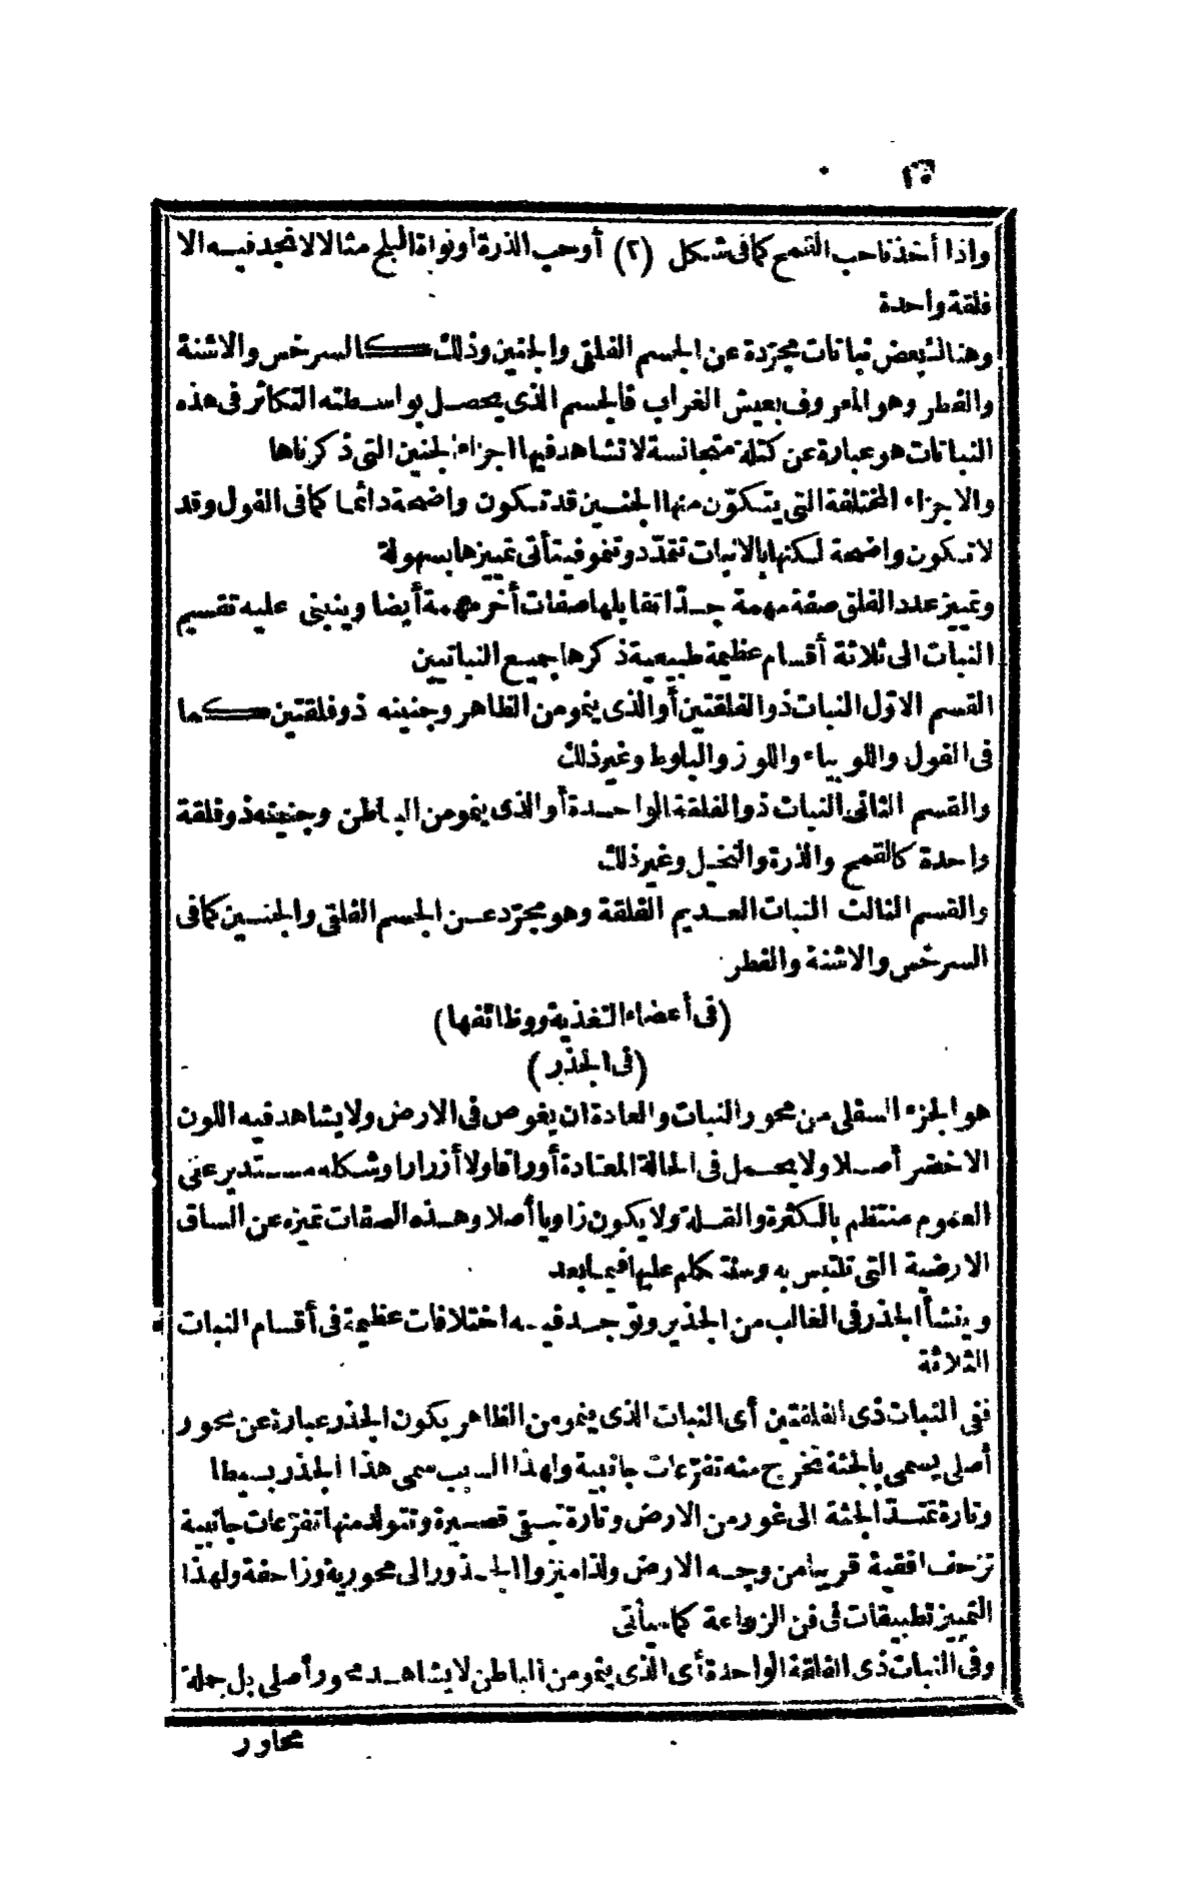 واذا أخذنا حب القمح كما فى شكل (٢) أوحب الذرة أونواة البلح مثالا لا نجد فيه الا
فلقة واحدة
وهناك بعض نباتات مجرّدة عن الجسم الفلقى والجنين وذلك كالسرخس والاشنة
والفطر وهو المعروف بعيش الغراب فالجسم الذى يحصل بواسطته التكاثر فى هذه
النباتات هو عبارة عن كتلة متجانسة لا تشاهد فيها اجزاء الجنين التى ذكرناها
والاجزاء المختلفة التى يتكوّن منها الجنين قد تكون واضحة دائما كما فى الفول وقد
لا تكون واضحة لكنها بالانبات تتمدّد وتنمو فيتأتى تمييزها بسهولة
وتمييز عدد الفلق صفة مهمة جدّا تقابلها صفات أخر مهمة أيضا وينبنى عليه تقسيم
النبات الى ثلاثة أقسام عظيمة طبيعية ذكرها جميع النباتيين
القسم الاوّل النبات ذو الفلقتين أو الذى ينمو من الظاهر وجنينه ذو فلقتين كما
فى الفول واللوبياء واللوز والبلوط وغير ذلك
والقسم الثانى النبات ذو الفلقة الواحدة أو الذى ينمو من الباطن وجنينه ذو فلقة
واحدة كالقمح والذرة والنخيل وغير ذلك
والقسم الثالث النبات العديم الفلقة وهو مجرّد عن الجسم الفلقى والجنين كما فى
السرخس والاشنة والفطر
(فى أعضاء التغذية ووظائفها)
(فى الجذر)
هو الجزء السفلى من محور النبات والعادة ان يغوص فى الارض ولا يشاهد فيه اللون
الاخضر أصلا ولا يحمل فى الحالة المعتادة أوراقا ولا أزرارا وشكله مستدير على
العموم منتظم بالكثرة والقلة ولا يكون زاويا أصلا وهذه الصفات تميزه عن الساق
الارضية التى تلتبس به وسنتكلم عليها فيما بعد
وينشأ الجذر فى الغالب من الجذير وتوجد فيه اختلافات عظيمة فى أقسام النبات
الثلاثة
ففى النبات ذى الفلقتين أى النبات الذى ينمو من الظاهر يكون الجذر عبارة عن محور
أصلى يسمى بالجثة تخرج منه تفرّعات جانبية ولهذا السبب سمى هذا الجذر بسيطا
وتارة تمتدّ الجثة الى غور من الارض وتارة تبقى قصيرة وتتولد منها تفرّعات جانبية
تزحف افقية قريبا من وجه الارض ولذا ميزوا الجذور الى محورية وزاحفة ولهذا
التمييز تطبيقات فى فن الزراعة كما سيأتى
وفى النبات ذى الفلقة الواحدة أى الذى ينمو من الباطن لا يشاهد محور أصلى بل جملة
محاور